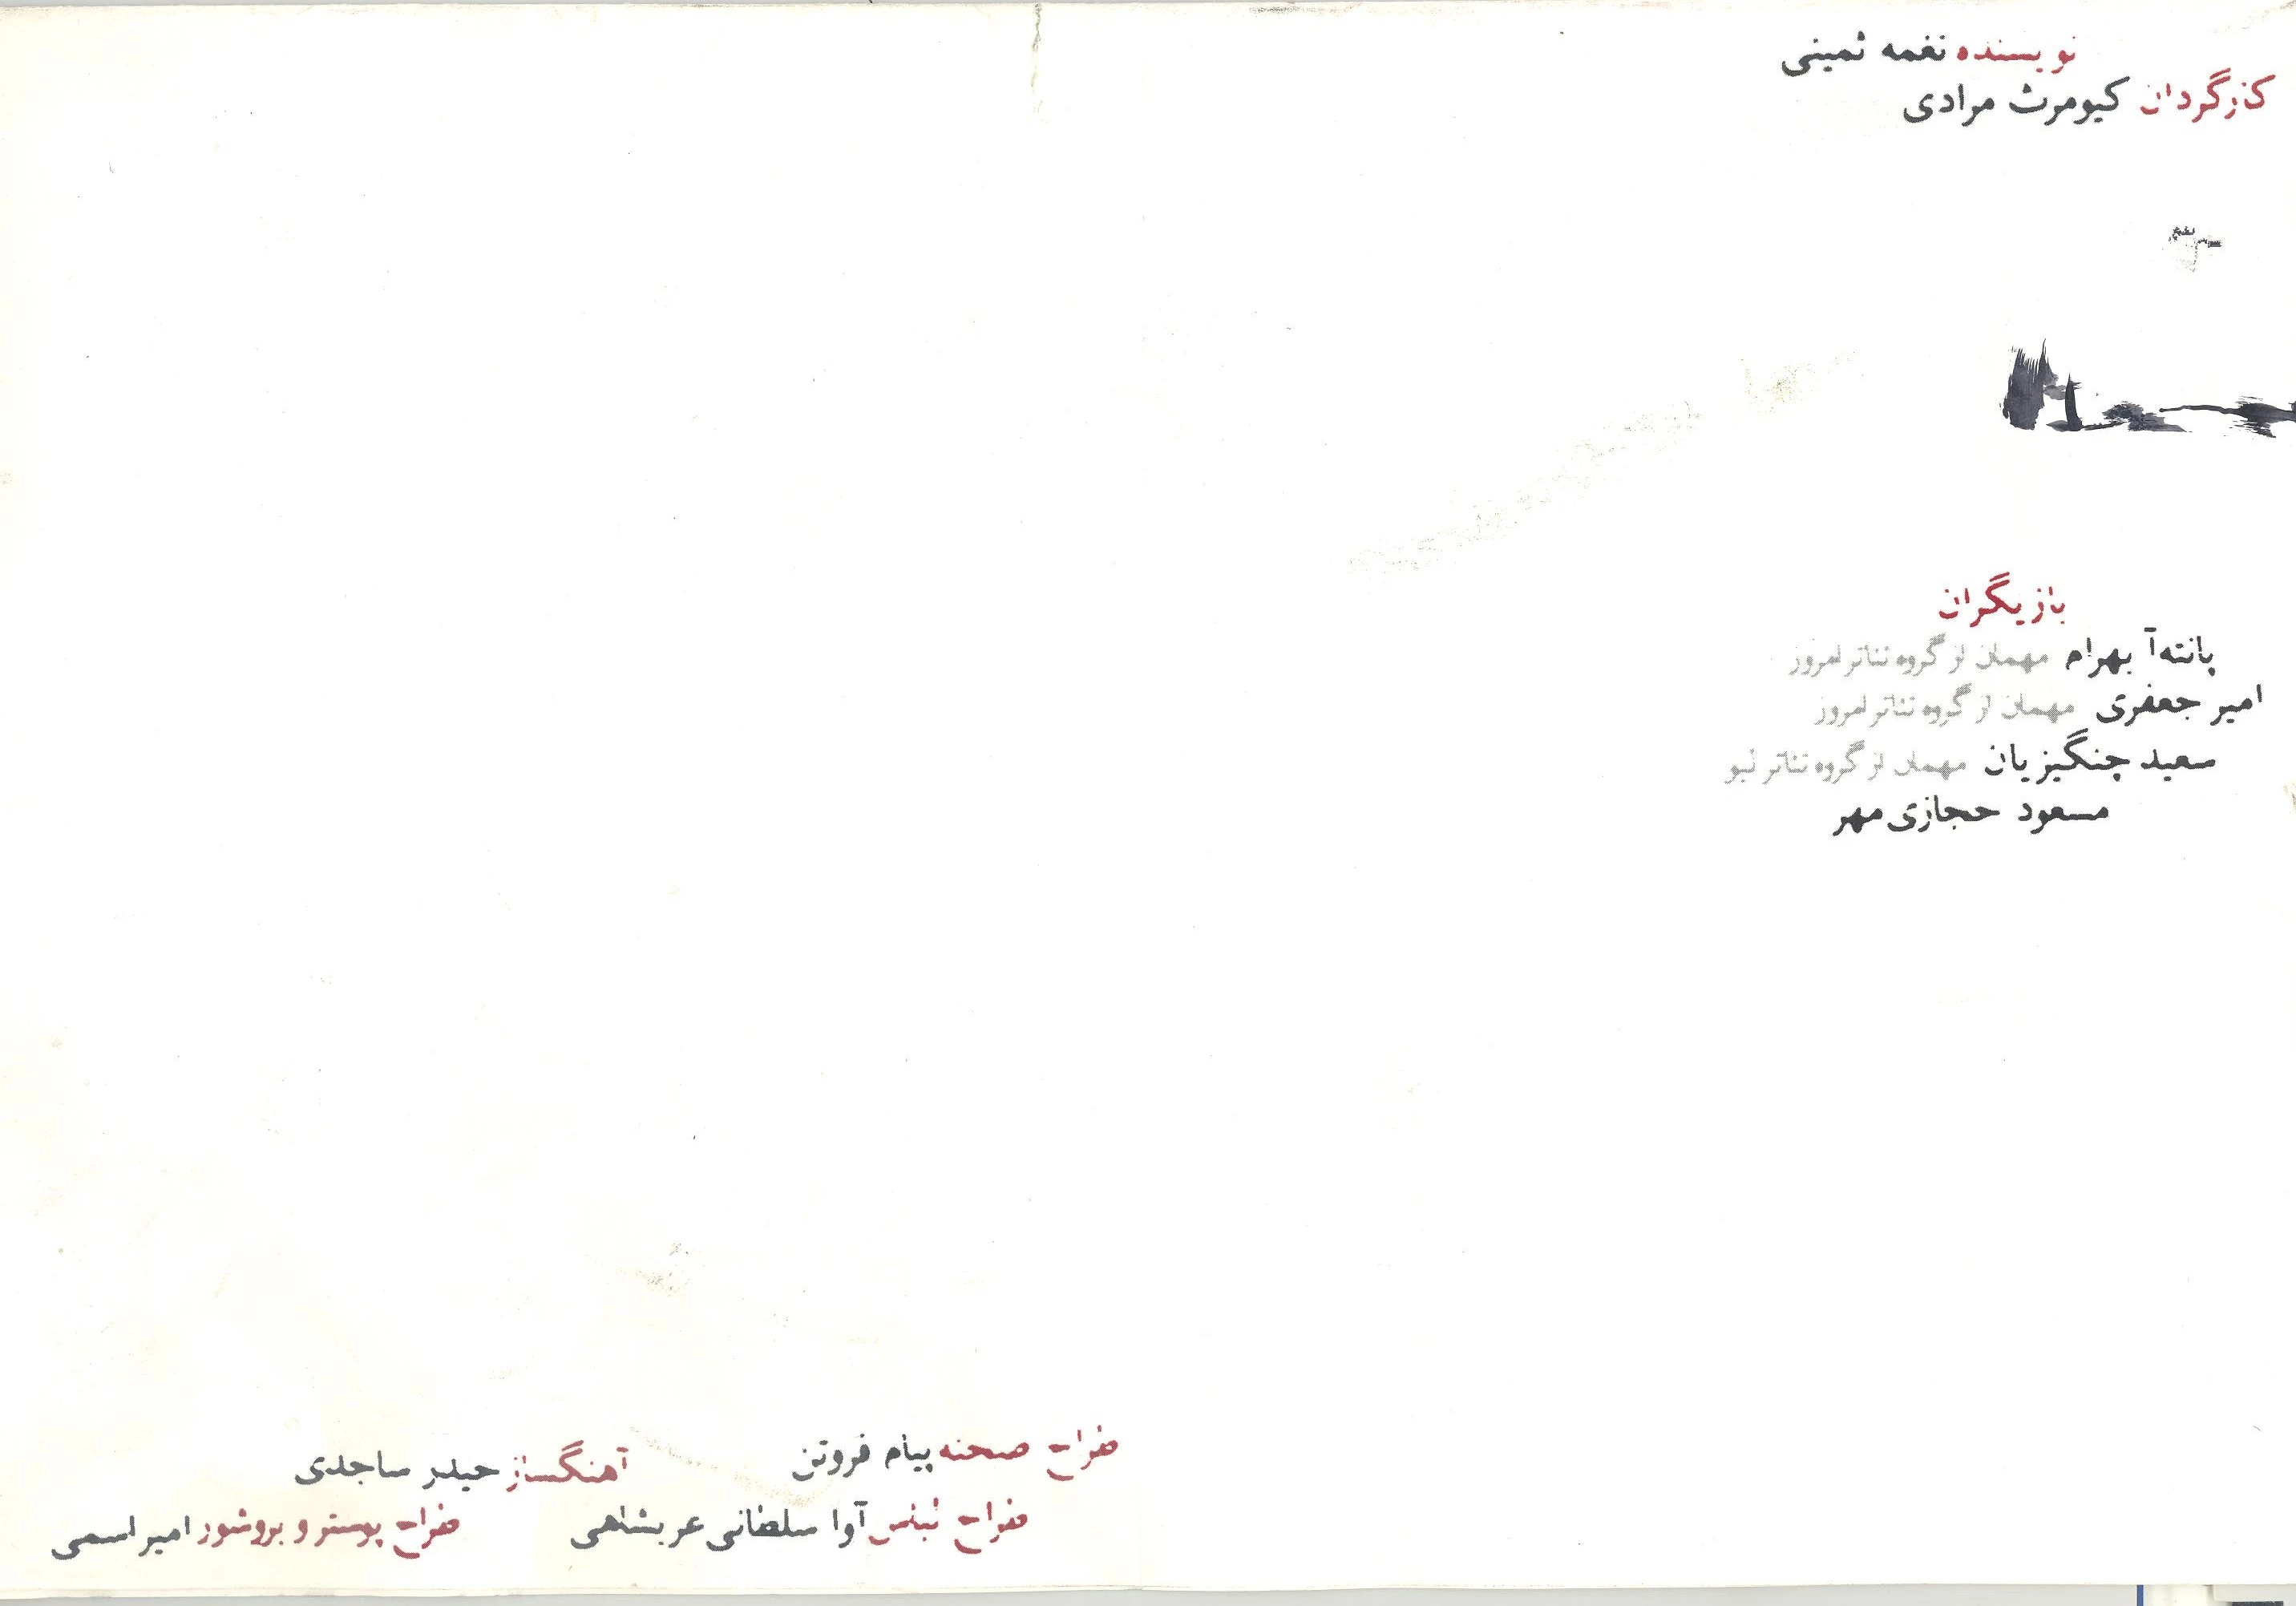 نویسنده نغمه ثمینی
کارگردان کیومرث مرادی
بازیگران
پانته‌آ بهرام مهمان از گروه تئاتر امروز
امیر جعفری مهمان از گروه تئاتر امروز
سعید چنگیزیان مهمان از گروه تئاتر لیو
مسعود حجازی مهر
طراح صحنه پیام فروتن
آهنگساز حیدر ساجدی
طراح لباس آوا سلطانی عربشاهی
طراح پوستر و بروشور امیر اسمی